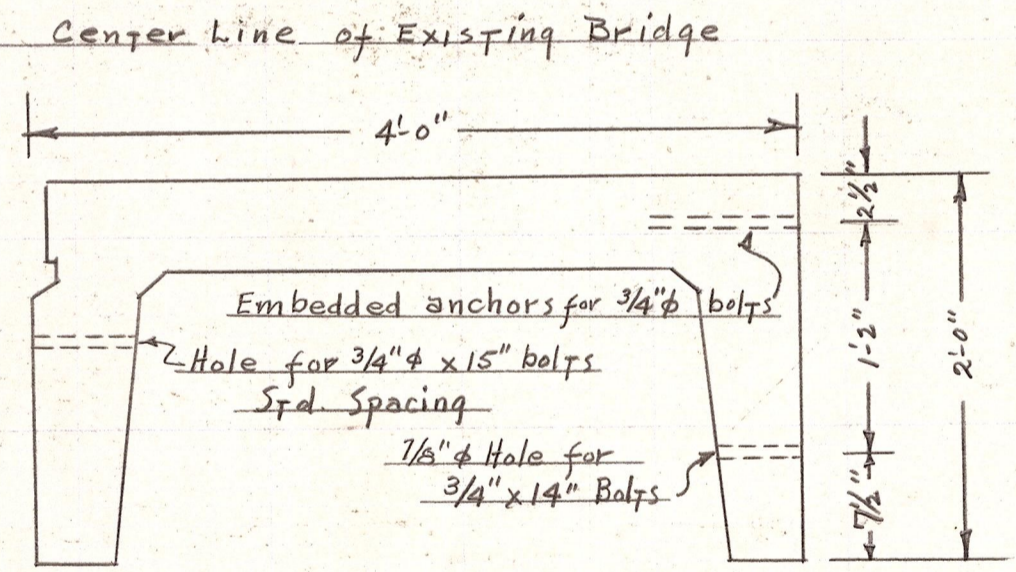 Center Line of Existing Bridge
4'-0"
2½"
Embedded anchors for 3/4"ϕ bolts
Hole for 3/4"ϕ x 15" bolts
Std. Spacing
1'-2"
2'-0"
7/8"ϕ Hole for
3/4" x 14" Bolts
7½"